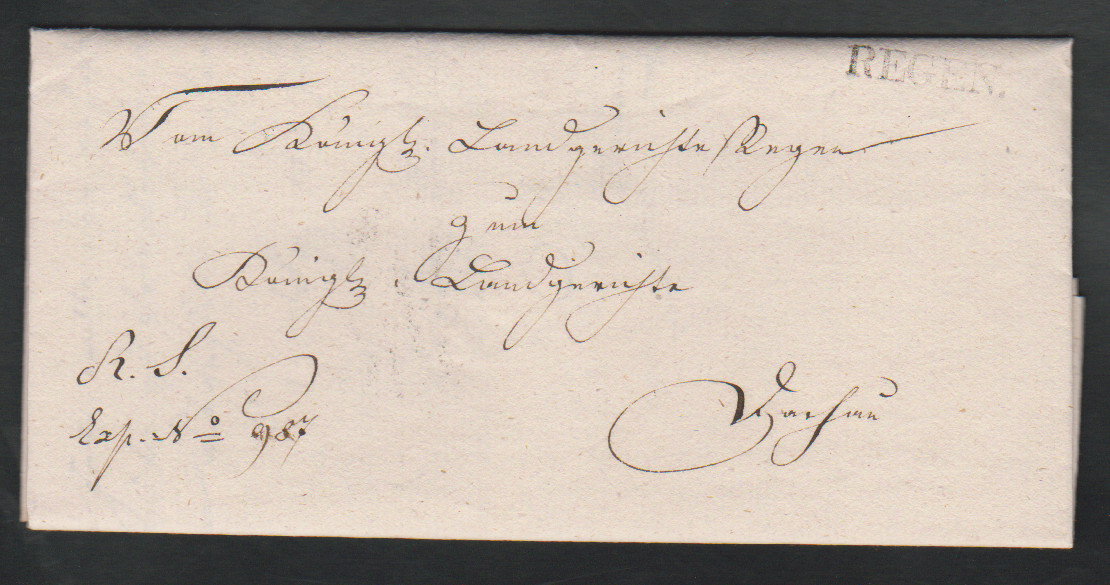 REGEN.
Vom Königl. Landgerichte Regen
zum
Königl. Landgerichte
R. S.
Dachau
Exp. No 987